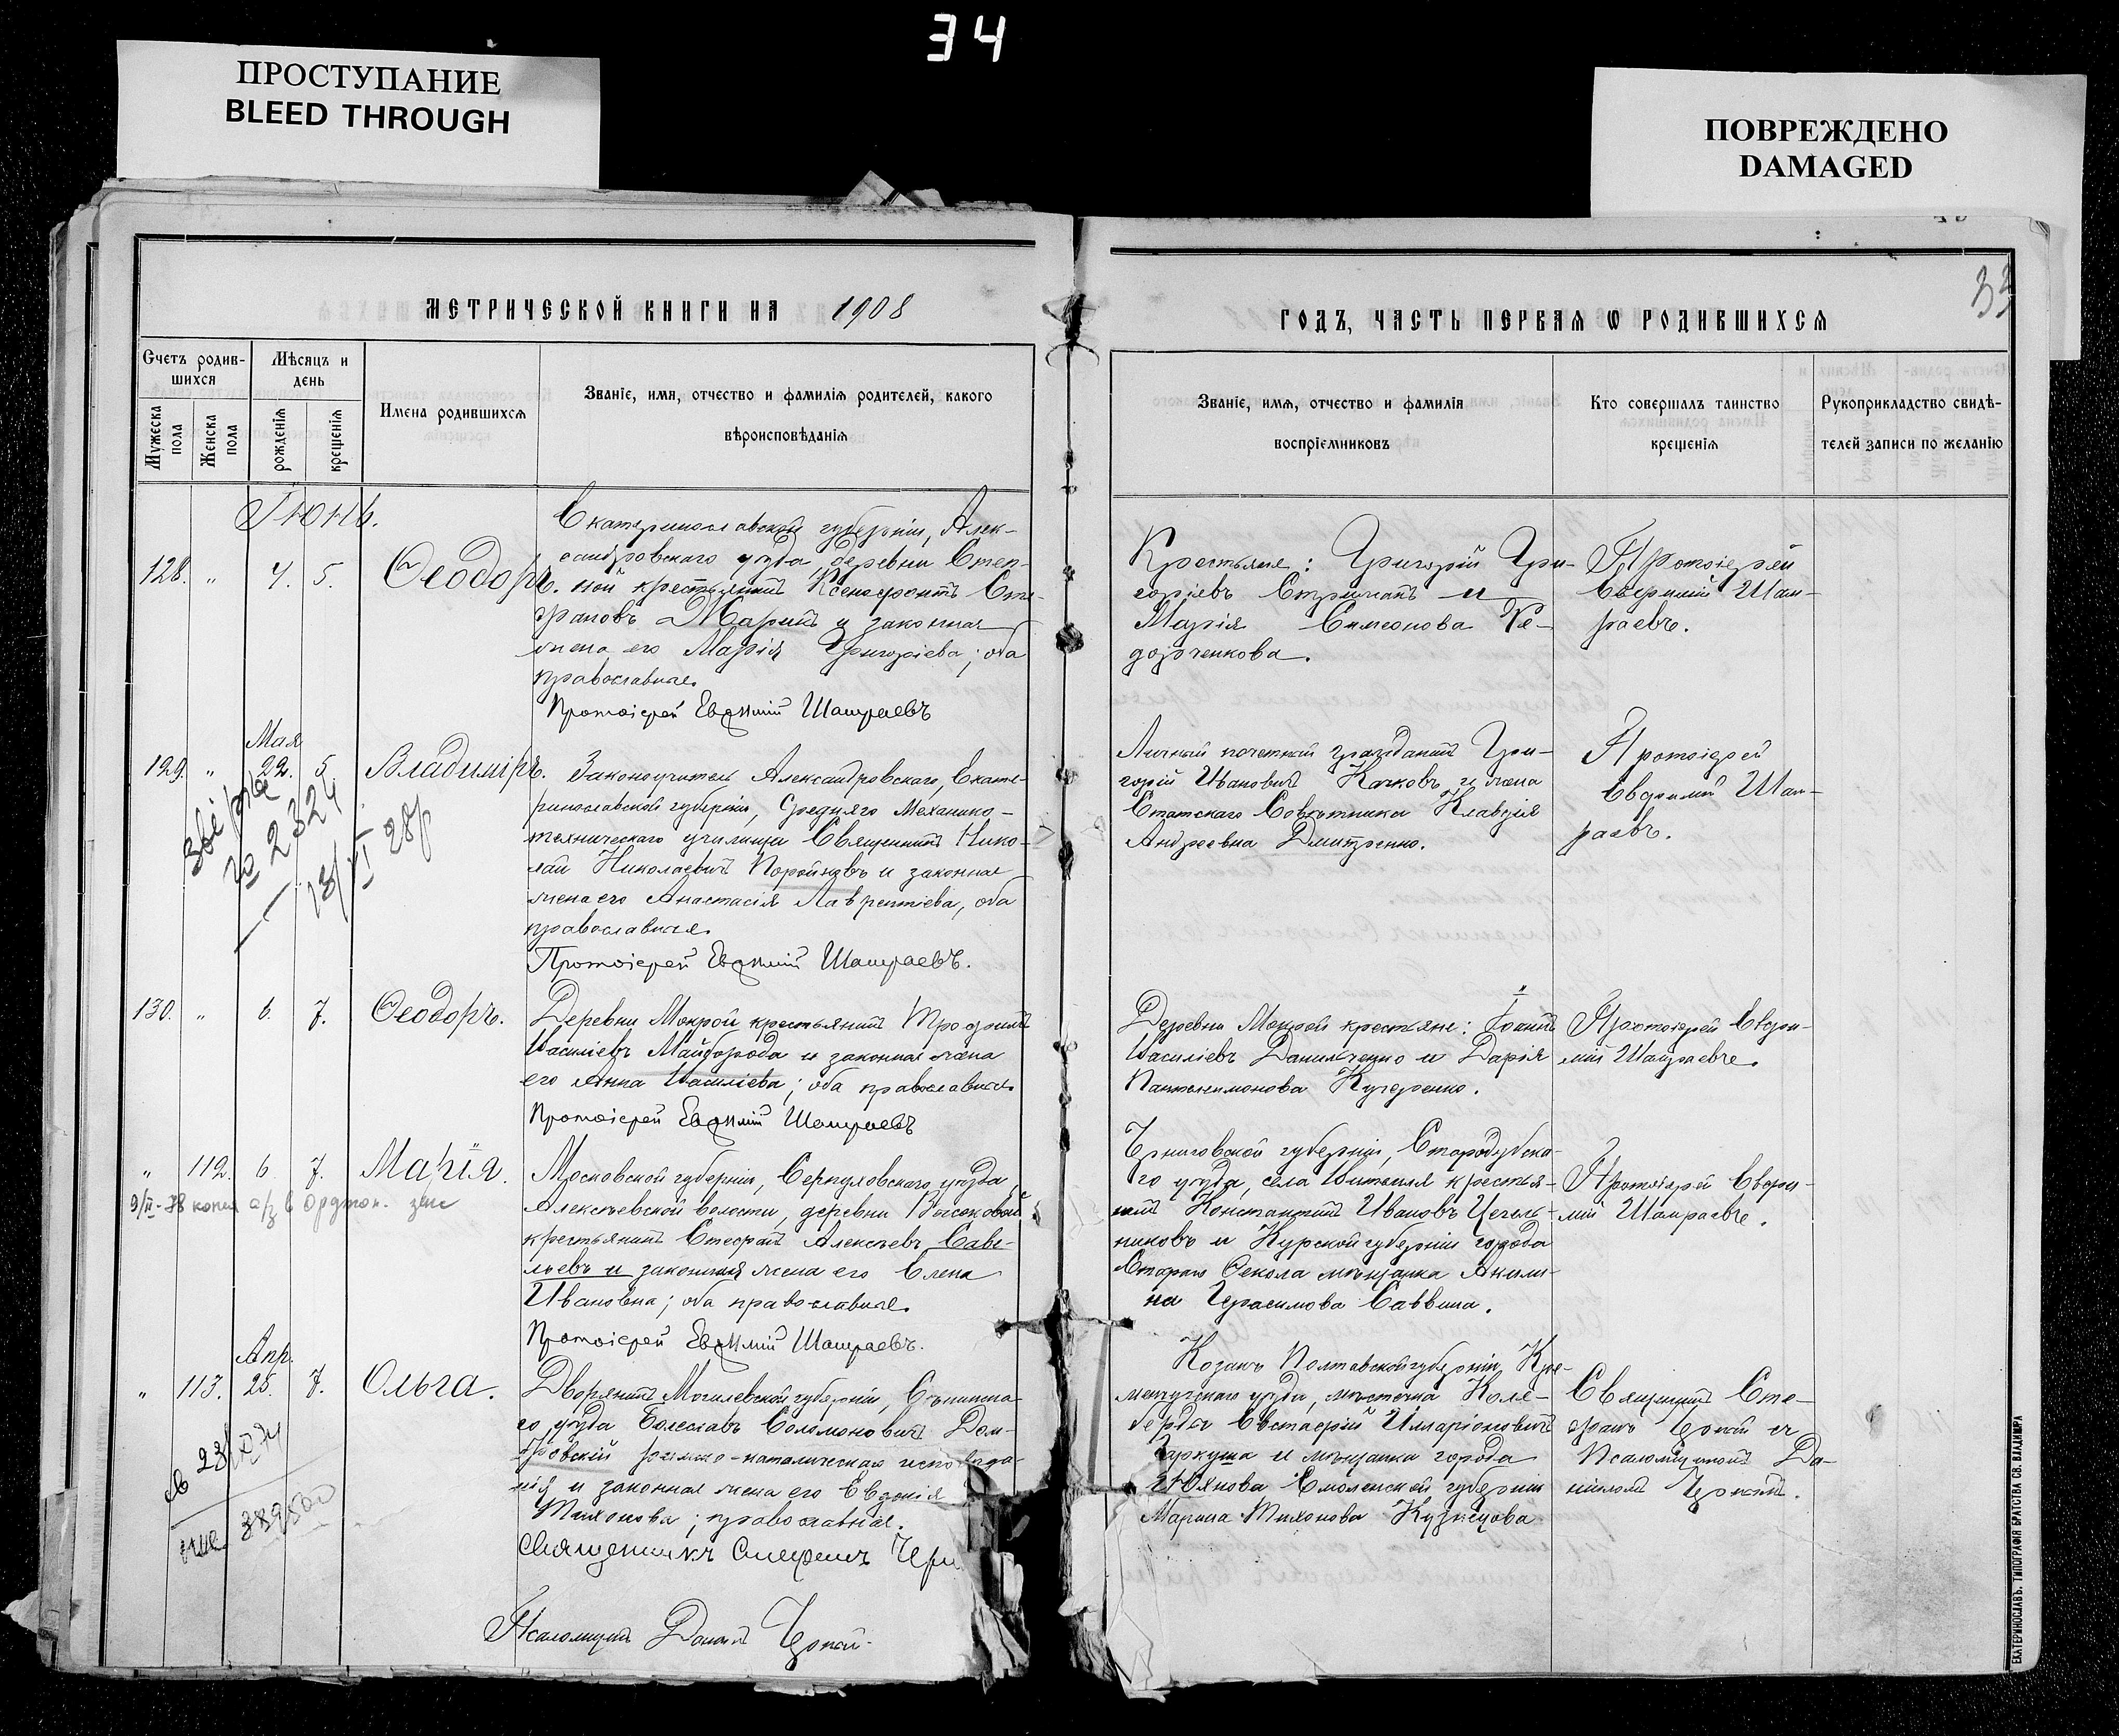 34
ПРОСТУПАНИЕ
BLEED THROUGH
ПОВРЕЖДЕНО
DAMAGED
33
МЕТРИЧЕСКОЙ КНИГИ НА 1908
ГОДЪ, ЧАСТЬ ПЕРВАЯ Ѡ РОДИВШИХСЯ
Счетъ родив-
шихся
Мужеска пола
Женска пола
Мѣсяцъ и
день
рожденія
крещенія
Имена родившихся
Званіе, имя, отчество и фамилія родителей, какого
вѣроисповѣданія
Званіе, имя, отчество и фамилія
воспріемниковъ
Кто совершалъ таинство
крещенія
Рукоприкладство свидѣ-
телей записи по желанію
Іюнь.
128. „ 4. 5. Ѳеодоръ.
Екатеринославской губерніи, Алек-
сандровскаго уѣзда, деревни Степ-
ной крестьянинъ Ксенофонтъ Сте-
фановъ и законная
жена его Марія Григоріева; оба
православные.
Протоіерей Евѳимій Шамраевъ
Крестьяне: Григорій Гри-
горіевъ и
Марія Симеонова Ѳе-
дорченкова.
Протоіерей
Евфимій Шам-
раевъ.
Мая
129. „ 22. 5. Владиміръ.
Законоучитель Александровскаго, Екате-
ринославской губерніи, Средняго Механико-
техническаго училища Священникъ Нико-
лай Николаевичъ и законная
жена его Анастасія Лаврентіева, оба
православные.
Протоіерей Евѳимій Шамраевъ.
Личный почетный гражданинъ Гри-
горій Ивановичъ и жена
Статскаго Совѣтника Клавдія
Андреевна Дмитренко.
Протоіерей
Евфимій Шам-
раевъ.
№ 2324
130. „ 6. 7. Ѳеодоръ.
Деревни Мокрой крестьянинъ Трофимъ
Василіевъ Майборода и законная жена
его Анна Василіева; оба православные
Протоіерей Евѳимій Шамраевъ
Деревни Мокрой крестьяне: Іоаннъ
Василіевъ Данильченко и Дарія
Пантелеимонова Кучеренко.
Протоіерей Евфи-
мій Шамраевъ.
„ 112. 6. 7. Марія.
Московской губерніи, Серпуховскаго уѣзда,
Алексѣевской волости, деревни
крестьянинъ Стефанъ Алексѣевъ Саве-
льевъ и законная жена его Елена
Ивановна; оба православные.
Протоіерей Евѳимій Шамраевъ.
Черниговской губерніи, Стародубска-
го уѣзда, села крестья-
нинъ Константинъ Ивановъ
никовъ и Курской губерніи города
Стараго Оскола мѣщанка Акили-
на Герасимова Саввина.
Протоіерей Евфи-
мій Шамраевъ.
Апр.
„ 113. 25. 7. Ольга.
Дворянинъ Могилевской губерніи, Сѣннинска-
го уѣзда Болеславъ Соломоновичъ Дом-
бровскій римско-католическаго исповѣда-
нія и законная жена его Евдокія
Тихонова; православная.
Священникъ Стефанъ
Псаломщикъ Даніилъ
Козакъ Полтавской губерніи, Кре-
менчугскаго уѣзда, мѣстечка Келе-
берды Евстафій Илларіоновичъ
и мѣщанка города
Юхнова, Смоленской губерніи
Марина Тихонова Кузнецова
Священникъ Сте-
фанъ съ
Псаломщикомъ Да-
ніиломъ
389500
ЕКАТЕРИНОСЛАВЪ. ТИПОГРАФІЯ БРАТСТВА СВ. ВЛАДИМІРА